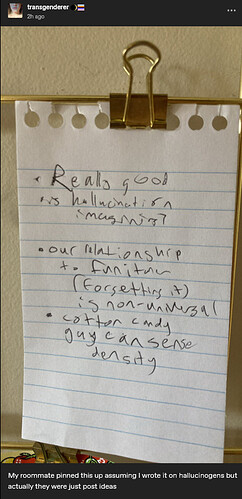 transgenderer
2h ago
• Really good
• is hallucination
imagining?
• our relationship
to furniture
(forgetting it)
is non-universal
• cotton candy
guy can sense
density
My roommate pinned this up assuming I wrote it on hallucinogens but
actually they were just post ideas